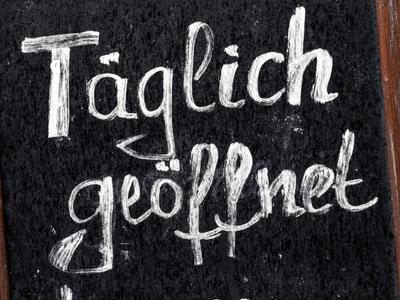 Täglich
geöffnet